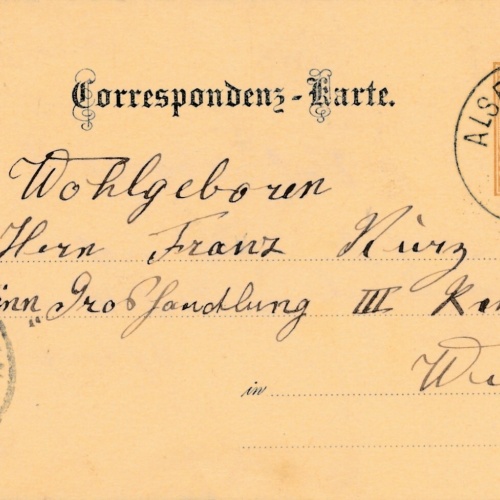 Correspondenz-Karte.
ALS
Wohlgeboren
Herrn Franz Kurz
Großhandlung III
in